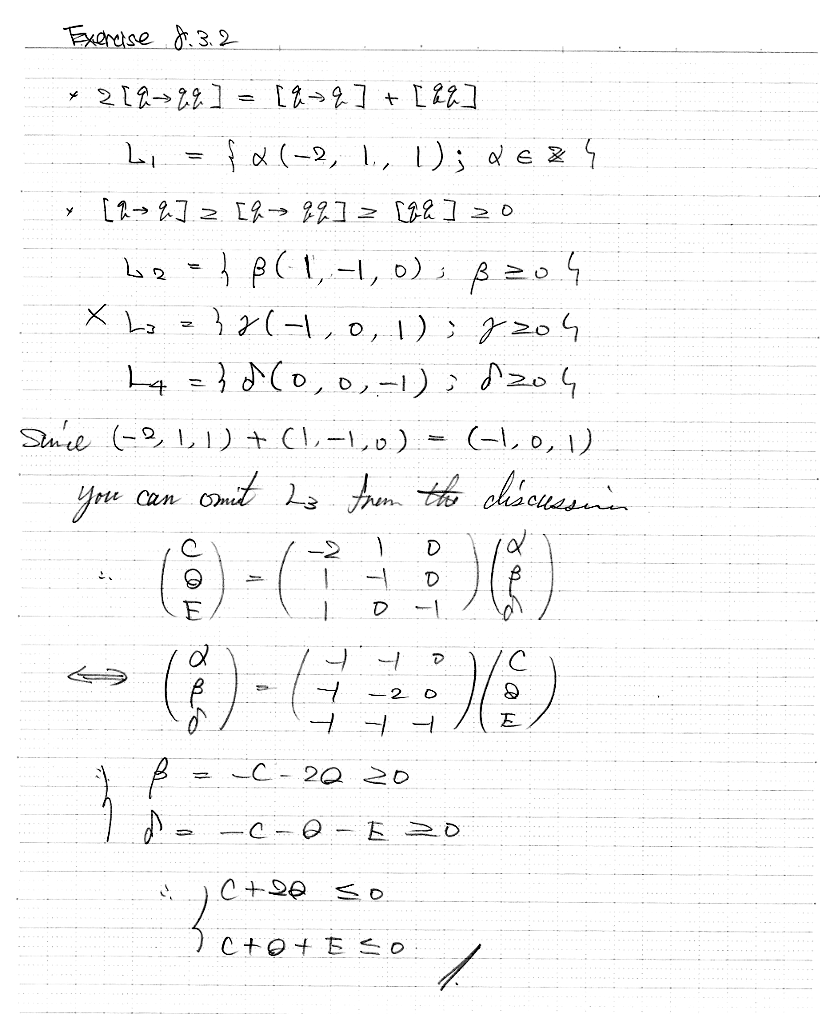 Exercise 8.3.2
× 2[q→qq] = [q→q] + [qq]
L1 = { α(-2, 1, 1); α ∈ ℤ }
× [q→q] ≥ [q→qq] ≥ [qq] ≥ 0
L2 = { β(1, -1, 0); β ≥ 0 }
× L3 = { γ(-1, 0, 1); γ ≥ 0 }
L4 = { δ(0, 0, -1); δ ≥ 0 }
Since (-2, 1, 1) + (1, -1, 0) = (-1, 0, 1)
you can omit L3 from the discussion
∴ (C Q E) = (-2 1 0
1 -1 0
1 0 -1) (α β δ)
⇔ (α β δ) = (-1 -1 0
-1 -2 0
-1 -1 -1) (C Q E)
∴ { β = -C - 2Q ≥ 0
δ = -C - Q - E ≥ 0
∴ { C + 2Q ≤ 0
C + Q + E ≤ 0